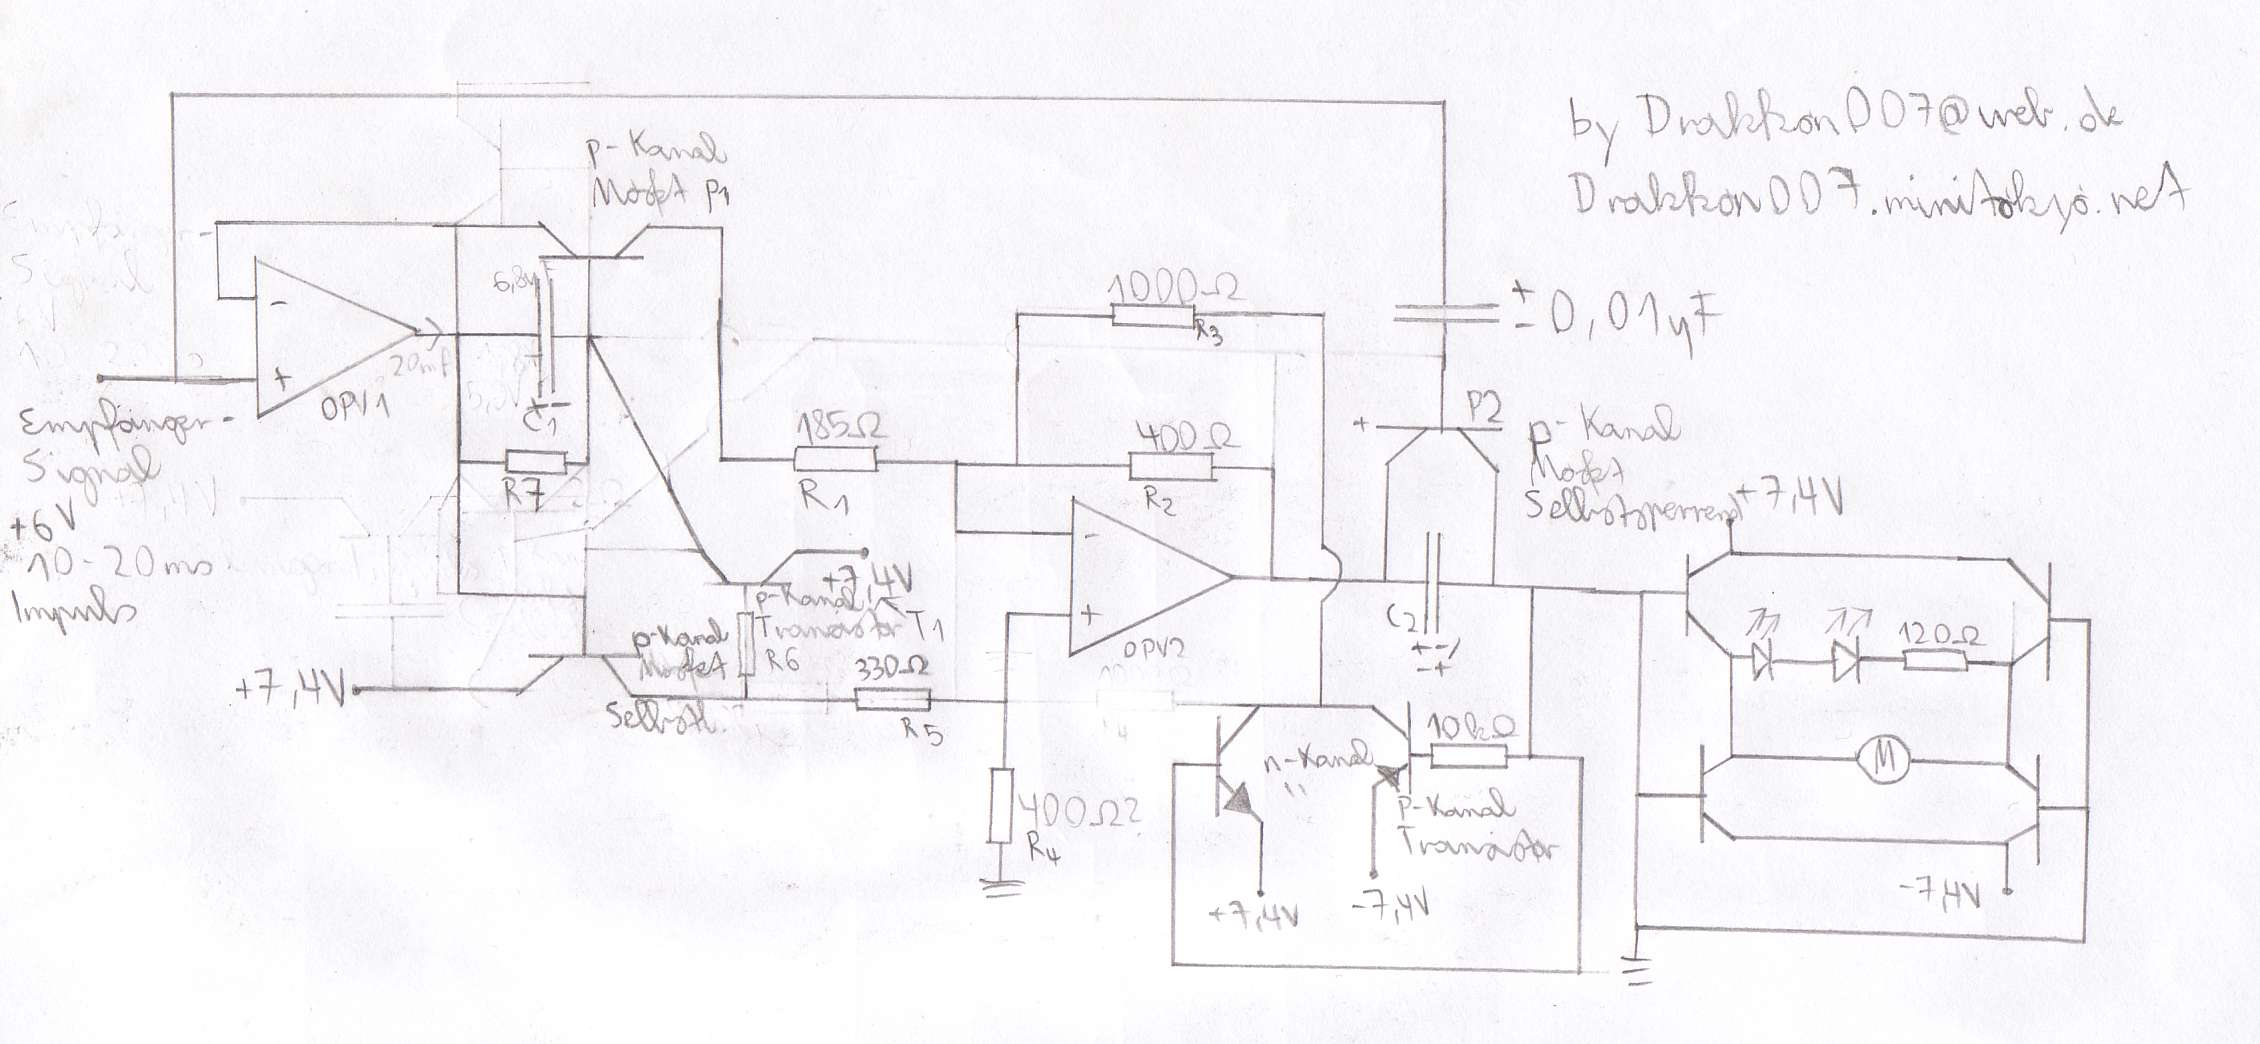 by Drakkon007@web.de
Drakkon007.minitokyo.net
p-Kanal
Mosfet P1
6,8µF
-
+
OPV1
20mA
C1
+ -
Empfänger-
Signal
+6V
10-20ms
Impuls
R7
185Ω
R1
1000Ω
R3
400Ω
R2
+
-
0,01µF
+
P2
p-Kanal
Mosfet
Selbstsperrend
+7,4V
+7,4V
p-Kanal
Transistor T1
p-Kanal
Mosfet
Selbstl.
R6
+7,4V
330Ω
R5
-
+
OPV2
C2
+ -
- +
120Ω
M
-7,4V
400Ω?
R4
R4
n-Kanal
"
10kΩ
p-Kanal
Transistor
+7,4V
-7,4V